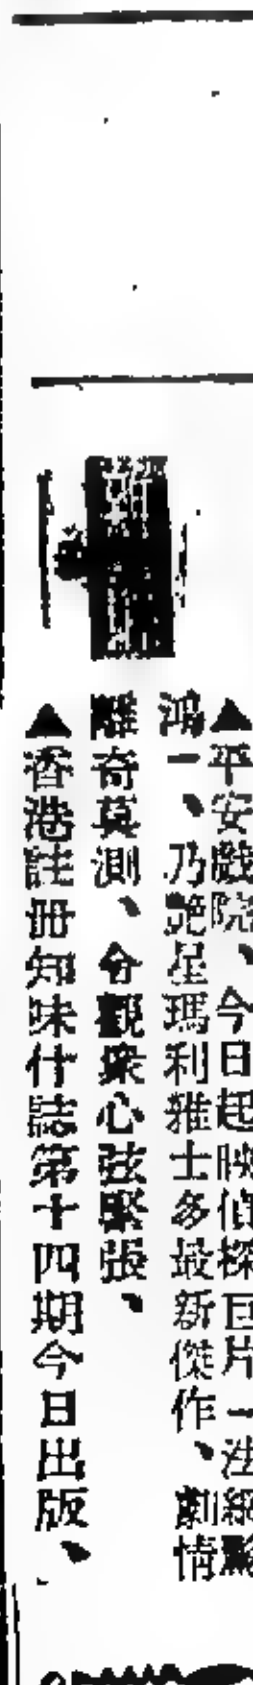 ▲平安戲院、今日起映偵探巨片「法網驚
鴻」、乃艶星瑪利雅士多最新傑作、劇情
離奇莫測、令觀衆心弦緊張、
▲香港註冊知味什誌第十四期今日出版、